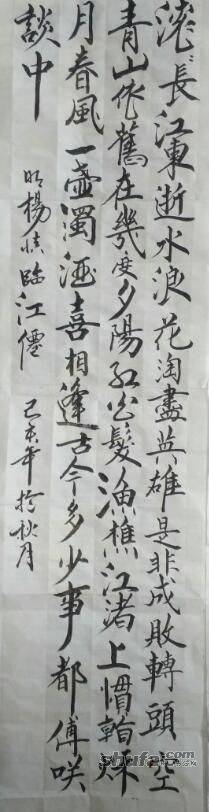 滚〻長江東逝水浪花淘盡英雄是非成敗轉頭空
青山依舊在幾度夕陽紅白髮漁樵江渚上慣看秌
月春風一壺濁酒喜相逢古今多少事都傅咲
談中
明楊慎臨江僊 己亥年於秋月
shufa.com